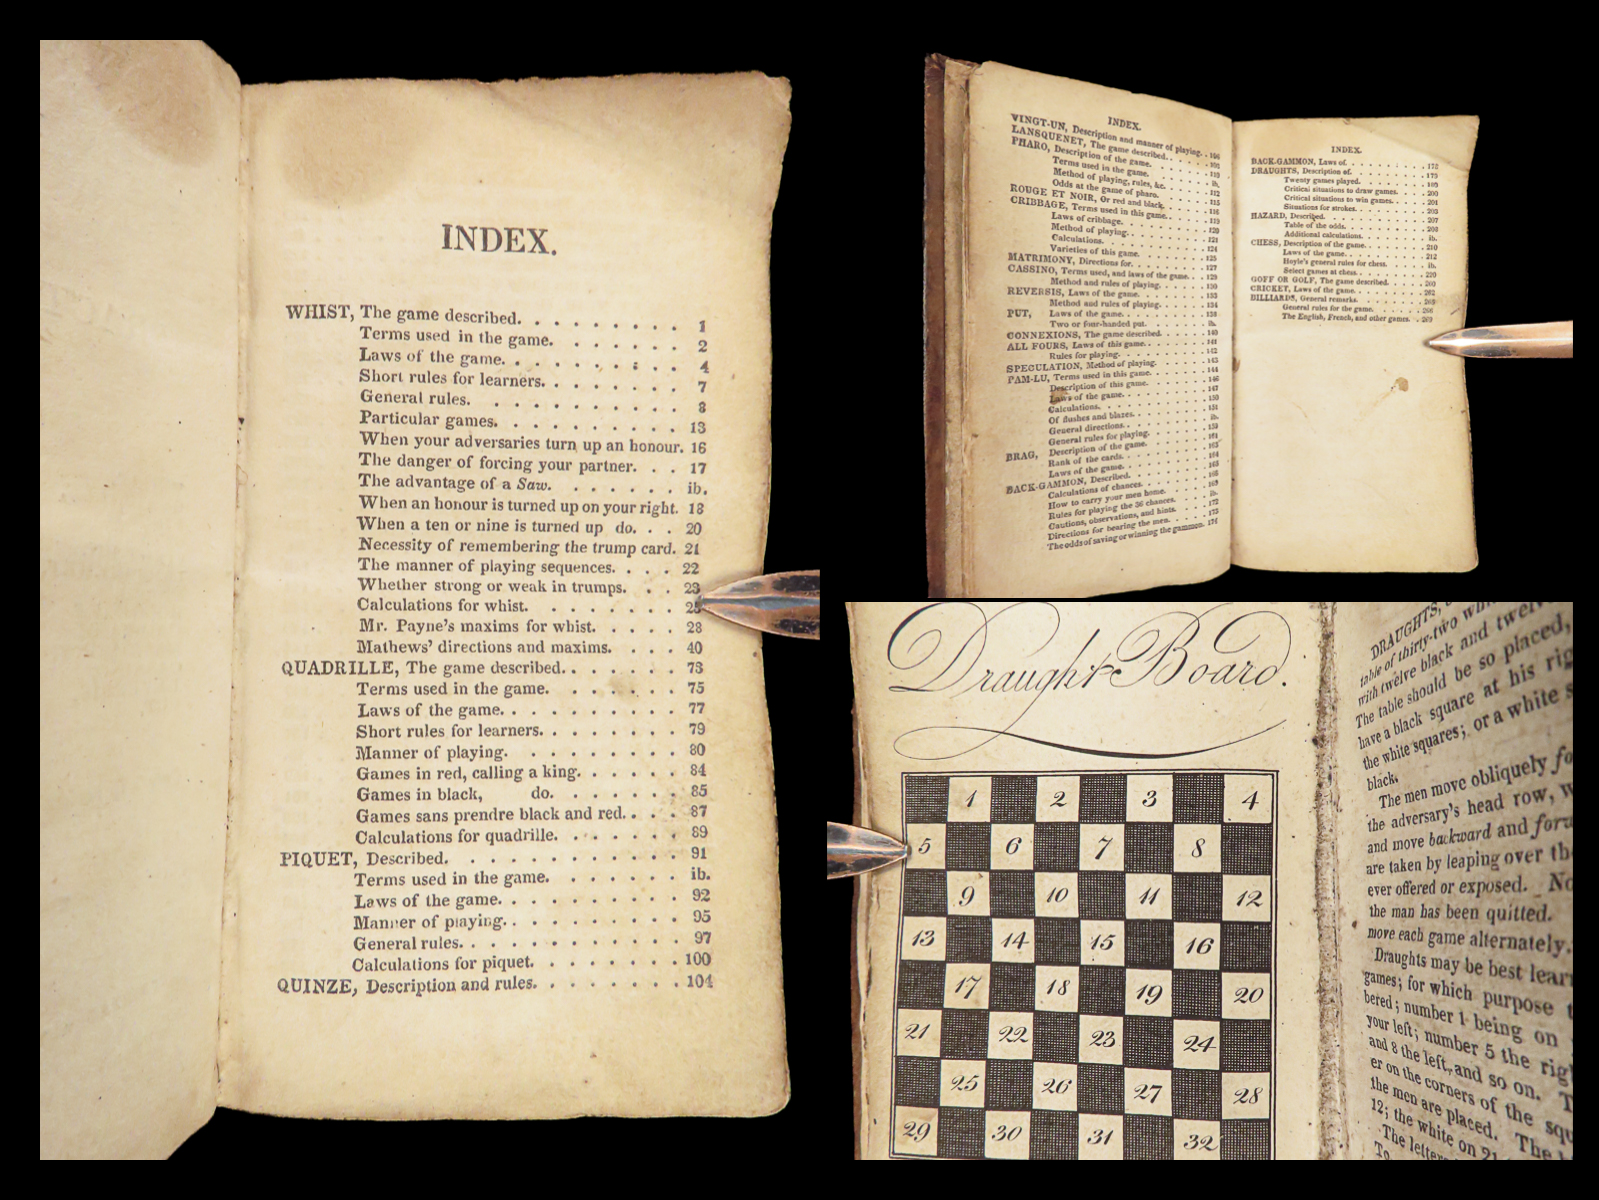 INDEX.
WHIST, The game described. . . . . . . . . 1
Terms used in the game. . . . . . . 2
Laws of the game. . . . . . . . . 4
Short rules for learners. . . . . . . . 7
General rules. . . . . . . . . . 8
Particular games. . . . . . . . . . 13
When your adversaries turn up an honour. 16
The danger of forcing your partner. . . 17
The advantage of a Saw. . . . . . . ib.
When an honour is turned up on your right. 18
When a ten or nine is turned up do. . . 20
Necessity of remembering the trump card. 21
The manner of playing sequences. . . . 22
Whether strong or weak in trumps. . . 23
Calculations for whist. . . . . . . .
Mr. Payne's maxims for whist. . . . . 28
Mathews' directions and maxims. . . . 40
QUADRILLE, The game described. . . . . . . 73
Terms used in the game. . . . . . . 75
Laws of the game. . . . . . . . . . 77
Short rules for learners. . . . . . . . 79
Manner of playing. . . . . . . . . 80
Games in red, calling a king. . . . . . 84
Games in black, do. . . . . . . . 85
Games sans prendre black and red. . . . 87
Calculations for quadrille. . . . . . . 89
PIQUET, Described. . . . . . . . . . . . 91
Terms used in the game. . . . . . . ib.
Laws of the game. . . . . . . . . . 92
Manner of playing. . . . . . . . . . 95
General rules. . . . . . . . . . . . 97
Calculations for piquet. . . . . . . . 100
QUINZE, Description and rules. . . . . . . . 104
INDEX.
VINGT-UN, Description and manner of playing. .
LANSQUENET, The game described. . . . .
PHARO, Description of the game. . . . .
Terms used in the game. . . . . .
Method of playing, rules, &c. . . . . ib.
Odds at the game of pharo. . . . . 112
ROUGE ET NOIR, Or red and black. . . . . 115
CRIBBAGE, Terms used in this game. . . . .
Laws of cribbage. . . . . . . 119
Method of playing. . . . . . . 120
Calculations. . . . . . . . 121
Varieties of this game. . . . . . 124
MATRIMONY, Directions for. . . . . . . 125
CASSINO, Terms used, and laws of the game. . . 127
Method and rules of playing. . . . . 129
REVERSIS, Laws of the game. . . . . . . 130
Method and rules of playing. . . . . 133
PUT, Laws of the game. . . . . . . 134
Two or four-handed put. . . . . .
CONNEXIONS, The game described. . . . . ib.
ALL FOURS, Laws of this game. . . . . . 140
Rules for playing. . . . . . . 141
SPECULATION, Method of playing. . . . . 142
PAM-LU, Terms used in this game. . . . . 143
Description of this game. . . . . 144
Laws of the game. . . . . . . 146
Calculations. . . . . . . . 147
Of flushes and blazes. . . . . . 150
General directions. . . . . . . 151
General rules for playing. . . . . ib.
BRAG, Description of the game. . . . . . 159
Rank of the cards. . . . . . . 161
Laws of the game. . . . . . .
BACK-GAMMON, Described. . . . . . . 164
Calculations of chances. . . . . .
How to carry your men home. . . . .
Rules for playing the 36 chances. . . .
Cautions, observations, and hints. . . ib.
Directions for bearing the men. . . . 172
The odds of saving or winning the gammon.
INDEX.
BACK-GAMMON, Laws of. . . . . . . . 178
DRAUGHTS, Description of. . . . . . . 179
Twenty games played. . . . . . 180
Critical situations to draw games. . . . 200
Critical situations to win games. . . . 201
Situations for strokes. . . . . . 205
HAZARD, Described. . . . . . . . . 207
Table of the odds. . . . . . . 208
Additional calculations. . . . . . ib.
CHESS, Description of the game. . . . . . 210
Laws of the game. . . . . . . 212
Hoyle's general rules for chess. . . . ib.
Select games at chess. . . . . . 220
GOFF OR GOLF, The game described. . . . . 260
CRICKET, Laws of the game. . . . . . . 262
BILLIARDS, General remarks. . . . . . .
General rules for the game. . . . .
The English, French, and other games. . 269
Draught Board.
1 2 3 4
5 6 7 8
9 10 11 12
13 14 15 16
17 18 19 20
21 22 23 24
25 26 27 28
29 30 31 32
DRAUGHTS,
table of thirty-two
with twelve black and twelve
The table should be so placed,
have a black square at his
the white squares; or a white
black.
The men move obliquely
the adversary's head row,
and move backward and
are taken by leaping over
ever offered or exposed.
the man has been quitted.
move each game alternately.
Draughts may be best
games; for which purpose
bered; number 1 being on
your left; number 5 the
and 8 the left, and so on.
er on the corners of the
the men are placed. The
12; the white on 21
The
To